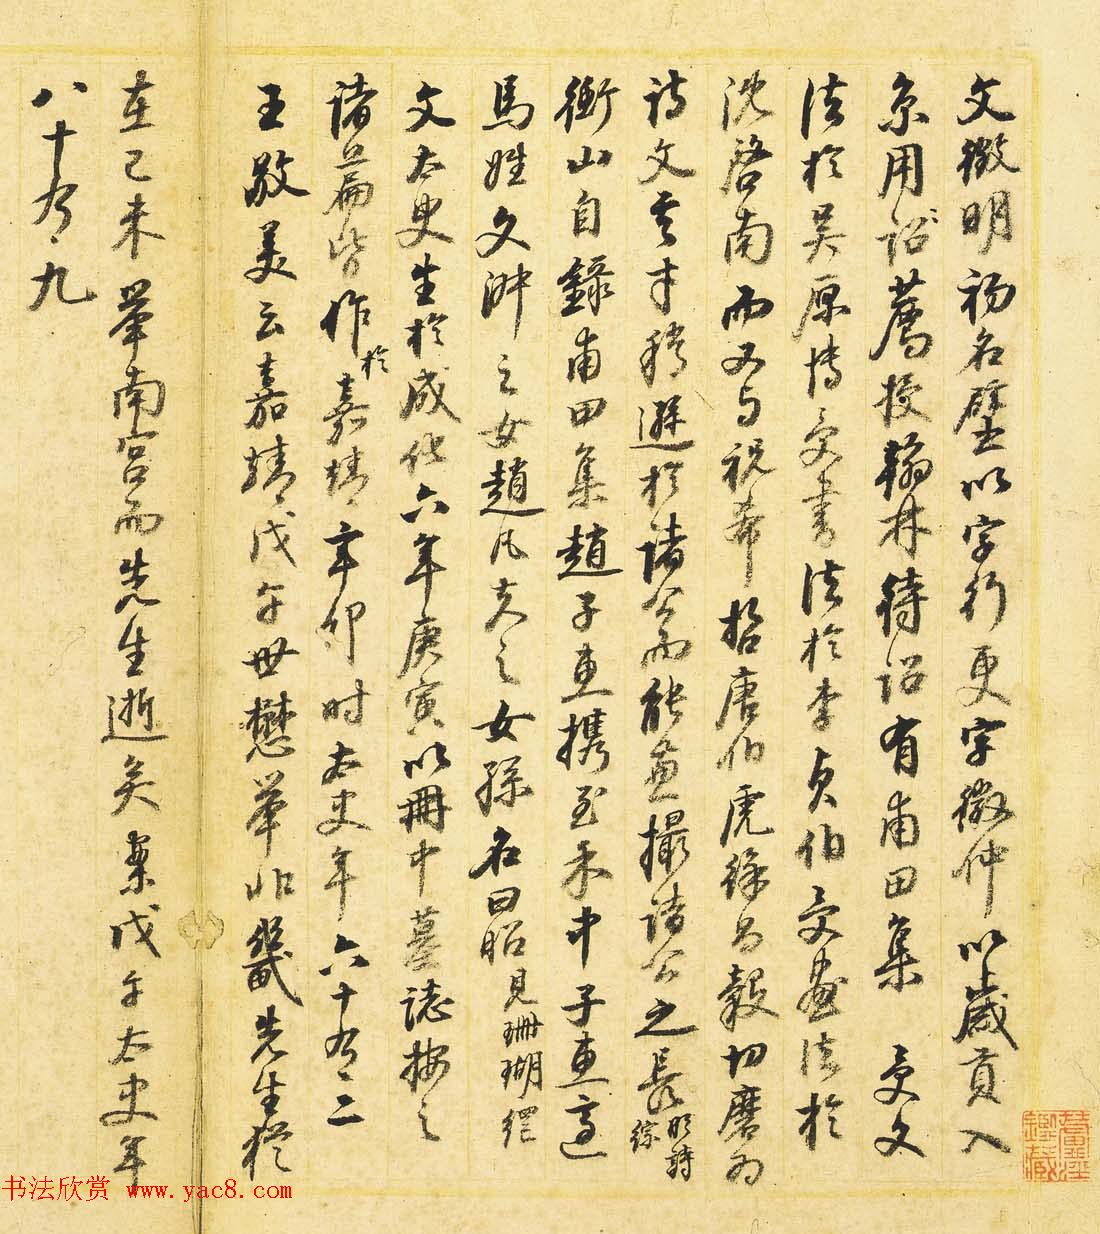 文徵明初名璧以字行更字徵仲以歲貢入
京用詔薦授翰林待詔有甫田集 受文
法於吳原博受書法於李貞伯受畫法於
沈啓南而又与祝希哲唐伯虎徐昌穀切磨为
詩文其才稍遜於諸公而能兼撮諸公之長 明詩綜
衡山自錄甫田集趙子惠攜至禾中子惠遹
馬姓文淑之女趙凡夫之女孫名曰昭 見珊瑚網
文太史生於成化六年庚寅以冊中墓誌按之
諸篇皆作於嘉靖辛卯时太史年六十有二
王敬美云嘉靖戊午世懋舉北畿先生猶
在己未舉南宮而先生逝矣案戊午太史年
八十有九
書法欣賞 www.yac8.com